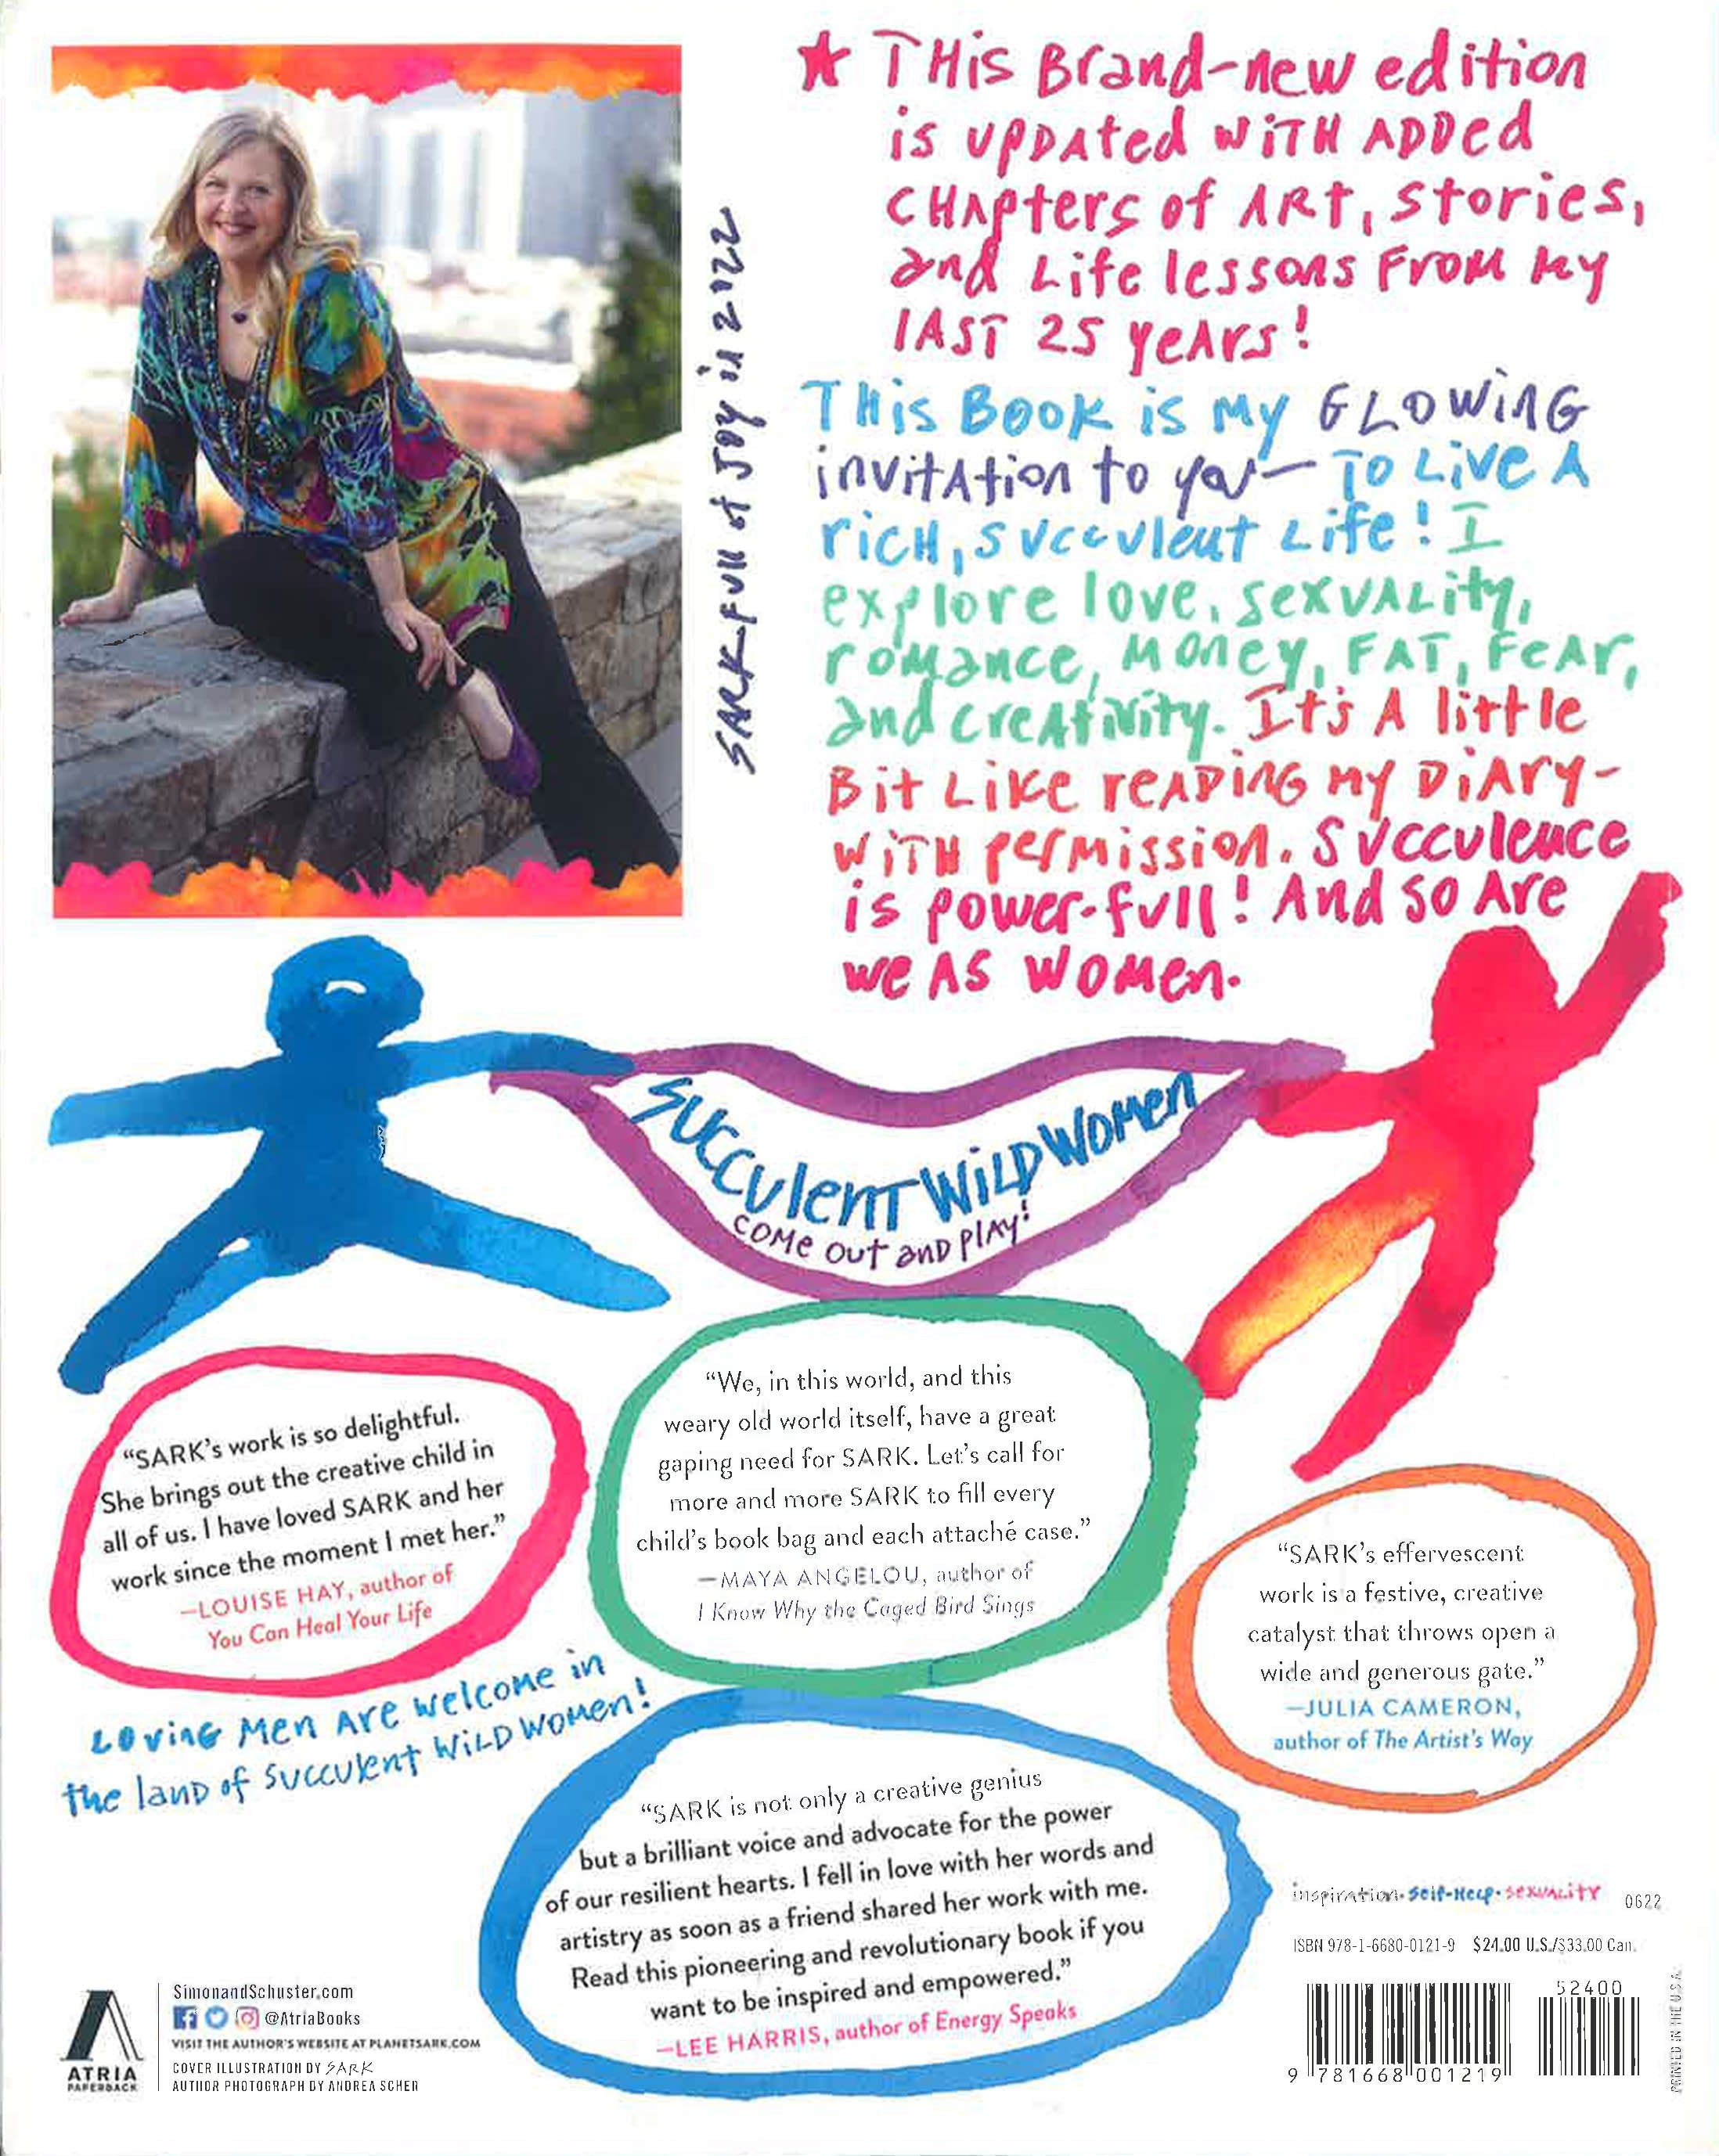 ★ THis Brand-new edition
is UPDAted WITH ADDed
CHApters of ART, stories,
and Life lessons From My
lAST 25 YeArs!
THis BOOK is My GLOWiNG
invitAtion to you— TO LiVe A
ricH, succulent Life! I
explore love, sexuALity,
romance, Money, FAT, FeAr,
and creAtivity. It's A little
Bit Like reADiNG My DiAry-
WiTH permission. Succulence
is power-full! And so Are
we AS WOMen.
SARK full of Joy in 2022
SUCCulenT WiLD WOMen
COMe OuT anD PlAy!
“SARK's work is so delightful.
She brings out the creative child in
all of us. I have loved SARK and her
work since the moment I met her.”
—LOUISE HAY, author of
You Can Heal Your Life
“We, in this world, and this
weary old world itself, have a great
gaping need for SARK. Let's call for
more and more SARK to fill every
child's book bag and each attaché case.”
—MAYA ANGELOU, author of
I Know Why the Caged Bird Sings
“SARK's effervescent
work is a festive, creative
catalyst that throws open a
wide and generous gate.”
—JULIA CAMERON,
author of The Artist's Way
LOviNG Men Are welcome in
the lanD of Succulent WiLD WOMen!
“SARK is not only a creative genius
but a brilliant voice and advocate for the power
of our resilient hearts. I fell in love with her words and
artistry as soon as a friend shared her work with me.
Read this pioneering and revolutionary book if you
want to be inspired and empowered.”
—LEE HARRIS, author of Energy Speaks
ATRIA
PAPERBACK
SimonandSchuster.com
@AtriaBooks
VISIT THE AUTHOR'S WEBSITE AT PLANETSARK.COM
COVER ILLUSTRATION BY SARK
AUTHOR PHOTOGRAPH BY ANDREA SCHER
inspiration • Self-Help • SexuALiTY 0622
ISBN 978-1-6680-0121-9 $24.00 U.S./$33.00 Can.
52400
9 781668 001219
PRINTED IN THE U.S.A.